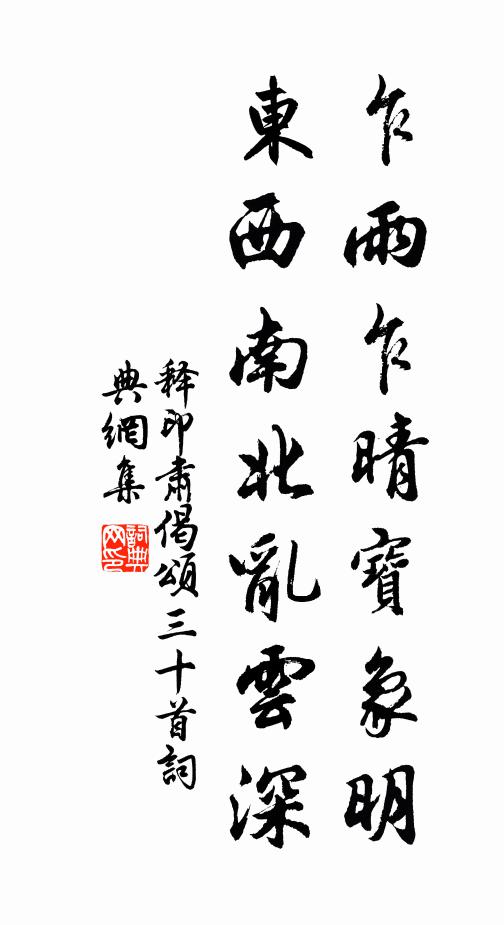 乍雨乍晴寶象明
東西南北亂雲深
釋印肅偈頌三十首詞
典網集
詞典網印